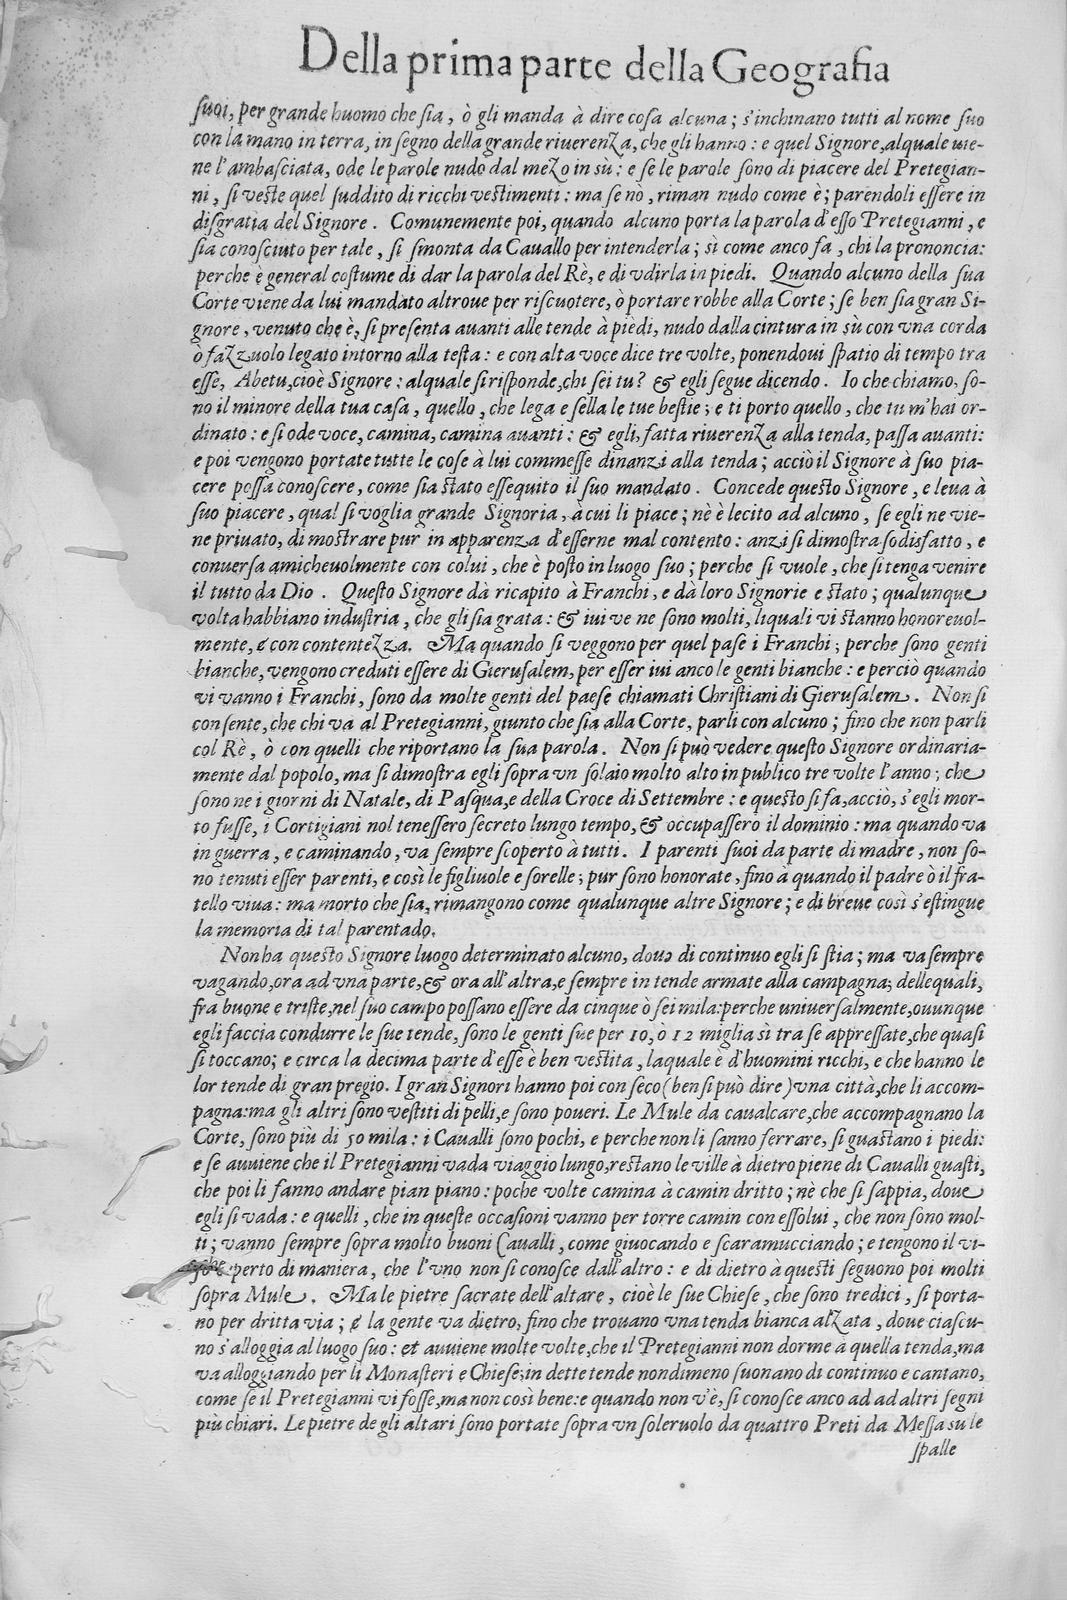 Della prima parte della Geografia
suoi, per grande huomo che sia, ò gli manda à dire cosa alcuna; s'inchinano tutti al nome suo
con la mano in terra, in segno della grande riuerenza, che gli hanno: e quel Signore, alquale vie-
ne l'ambasciata, ode le parole nudo dal mezo in sù: e se le parole sono di piacere del Pretegian-
ni, si veste quel suddito di ricchi vestimenti: ma se nò, riman nudo come è; parendoli essere in
disgratia del Signore. Comunemente poi, quando alcuno porta la parola d'esso Pretegianni, e
sia conosciuto per tale, si smonta da Cauallo per intenderla; sì come anco fa, chi la prononcia:
perche è general costume di dar la parola del Rè, e di vdirla in piedi. Quando alcuno della sua
Corte viene da lui mandato altroue per riscuotere, ò portare robbe alla Corte; se ben sia gran Si-
gnore, venuto che è, si presenta auanti alle tende à piedi, nudo dalla cintura in sù con vna corda
ò fazzuolo legato intorno alla testa: e con alta voce dice tre volte, ponendoui spatio di tempo tra
esse, Abetu, cioè Signore: alquale si risponde, chi sei tu? & egli segue dicendo. Io che chiamo, so-
no il minore della tua casa, quello, che lega e sella le tue bestie; e ti porto quello, che tu m'hai or-
dinato: e si ode voce, camina, camina auanti: & egli, fatta riuerenza alla tenda, passa auanti:
e poi vengono portate tutte le cose à lui commesse dinanzi alla tenda; acciò il Signore à suo pia-
cere possa conoscere, come sia stato essequito il suo mandato. Concede questo Signore, e leua à
suo piacere, qual si voglia grande Signoria, à cui li piace; nè è lecito ad alcuno, se egli ne vie-
ne priuato, di mostrare pur in apparenza d'esserne mal contento: anzi si dimostra sodisfatto, e
conuersa amicheuolmente con colui, che è posto in luogo suo; perche si vuole, che si tenga venire
il tutto da Dio. Questo Signore dà ricapito à Franchi, e dà loro Signorie e stato; qualunque
volta habbiano industria, che gli sia grata: & iui ve ne sono molti, liquali vi stanno honoreuol-
mente, e con contentezza. Ma quando si veggono per quel pase i Franchi; perche sono genti
bianche, vengono creduti essere di Gierusalem, per esser iui anco le genti bianche: e perciò quando
vi vanno i Franchi, sono da molte genti del paese chiamati Christiani di Gierusalem. Non si
consente, che chi va al Pretegianni, giunto che sia alla Corte, parli con alcuno; fino che non parli
col Rè, ò con quelli che riportano la sua parola. Non si può vedere questo Signore ordinaria-
mente dal popolo, ma si dimostra egli sopra vn solaio molto alto in publico tre volte l'anno; che
sono ne i giorni di Natale, di Pasqua, e della Croce di Settembre: e questo si fa, acciò, s'egli mor-
to fusse, i Cortigiani nol tenessero secreto lungo tempo, & occupassero il dominio: ma quando va
in guerra, e caminando, va sempre scoperto à tutti. I parenti suoi da parte di madre, non so-
no tenuti esser parenti, e così le figliuole e sorelle; pur sono honorate, fino à quando il padre ò il fra-
tello viua: ma morto che sia, rimangono come qualunque altre Signore; e di breue così s'estingue
la memoria di tal parentado.
Non ha questo Signore luogo determinato alcuno, doue di continuo egli si stia; ma va sempre
vagando, ora ad vna parte, & ora all'altra, e sempre in tende armate alla campagna; delle quali,
fra buone e triste, nel suo campo possano essere da cinque ò sei mila: perche uniuersalmente, ouunque
egli faccia condurre le sue tende, sono le genti sue per 10, ò 12 miglia sì tra se appressate, che quasi
si toccano; e circa la decima parte d'esse è ben vestita, laquale è d'huomini ricchi, e che hanno le
lor tende di gran pregio. I gran Signori hanno poi con seco (ben si può dire) vna città, che li accom-
pagna: ma gli altri sono vestiti di pelli, e sono poueri. Le Mule da caualcare, che accompagnano la
Corte, sono più di 50 mila: i Caualli sono pochi, e perche non li sanno ferrare, si guastano i piedi:
e se auuiene che il Pretegianni vada viaggio lungo, restano le ville à dietro piene di Caualli guasti,
che poi li fanno andare pian piano: poche volte camina à camin dritto; nè che si sappia, doue
egli si vada: e quelli, che in queste occasioni vanno per torre camin con essolui, che non sono mol-
ti; vanno sempre sopra molto buoni Caualli, come giuocando e scaramucciando; e tengono il vi-
perto di maniera, che l'vno non si conosce dall'altro: e di dietro à questi seguono poi molti
sopra Mule. Ma le pietre sacrate dell'altare, cioè le sue Chiese, che sono tredici, si porta-
no per dritta via; e la gente va dietro, fino che trouano vna tenda bianca alzata, doue ciascu-
no s'alloggia al luogo suo: et auuiene molte volte, che il Pretegianni non dorme à quella tenda, ma
va alloggiando per li Monasteri e Chiese; in dette tende nondimeno suonano di continuo e cantano,
come se il Pretegianni vi fosse, ma non così bene: e quando non v'è, si conosce anco ad ad altri segni
più chiari. Le pietre de gli altari sono portate sopra vn soleruolo da quattro Preti da Messa su le
spalle